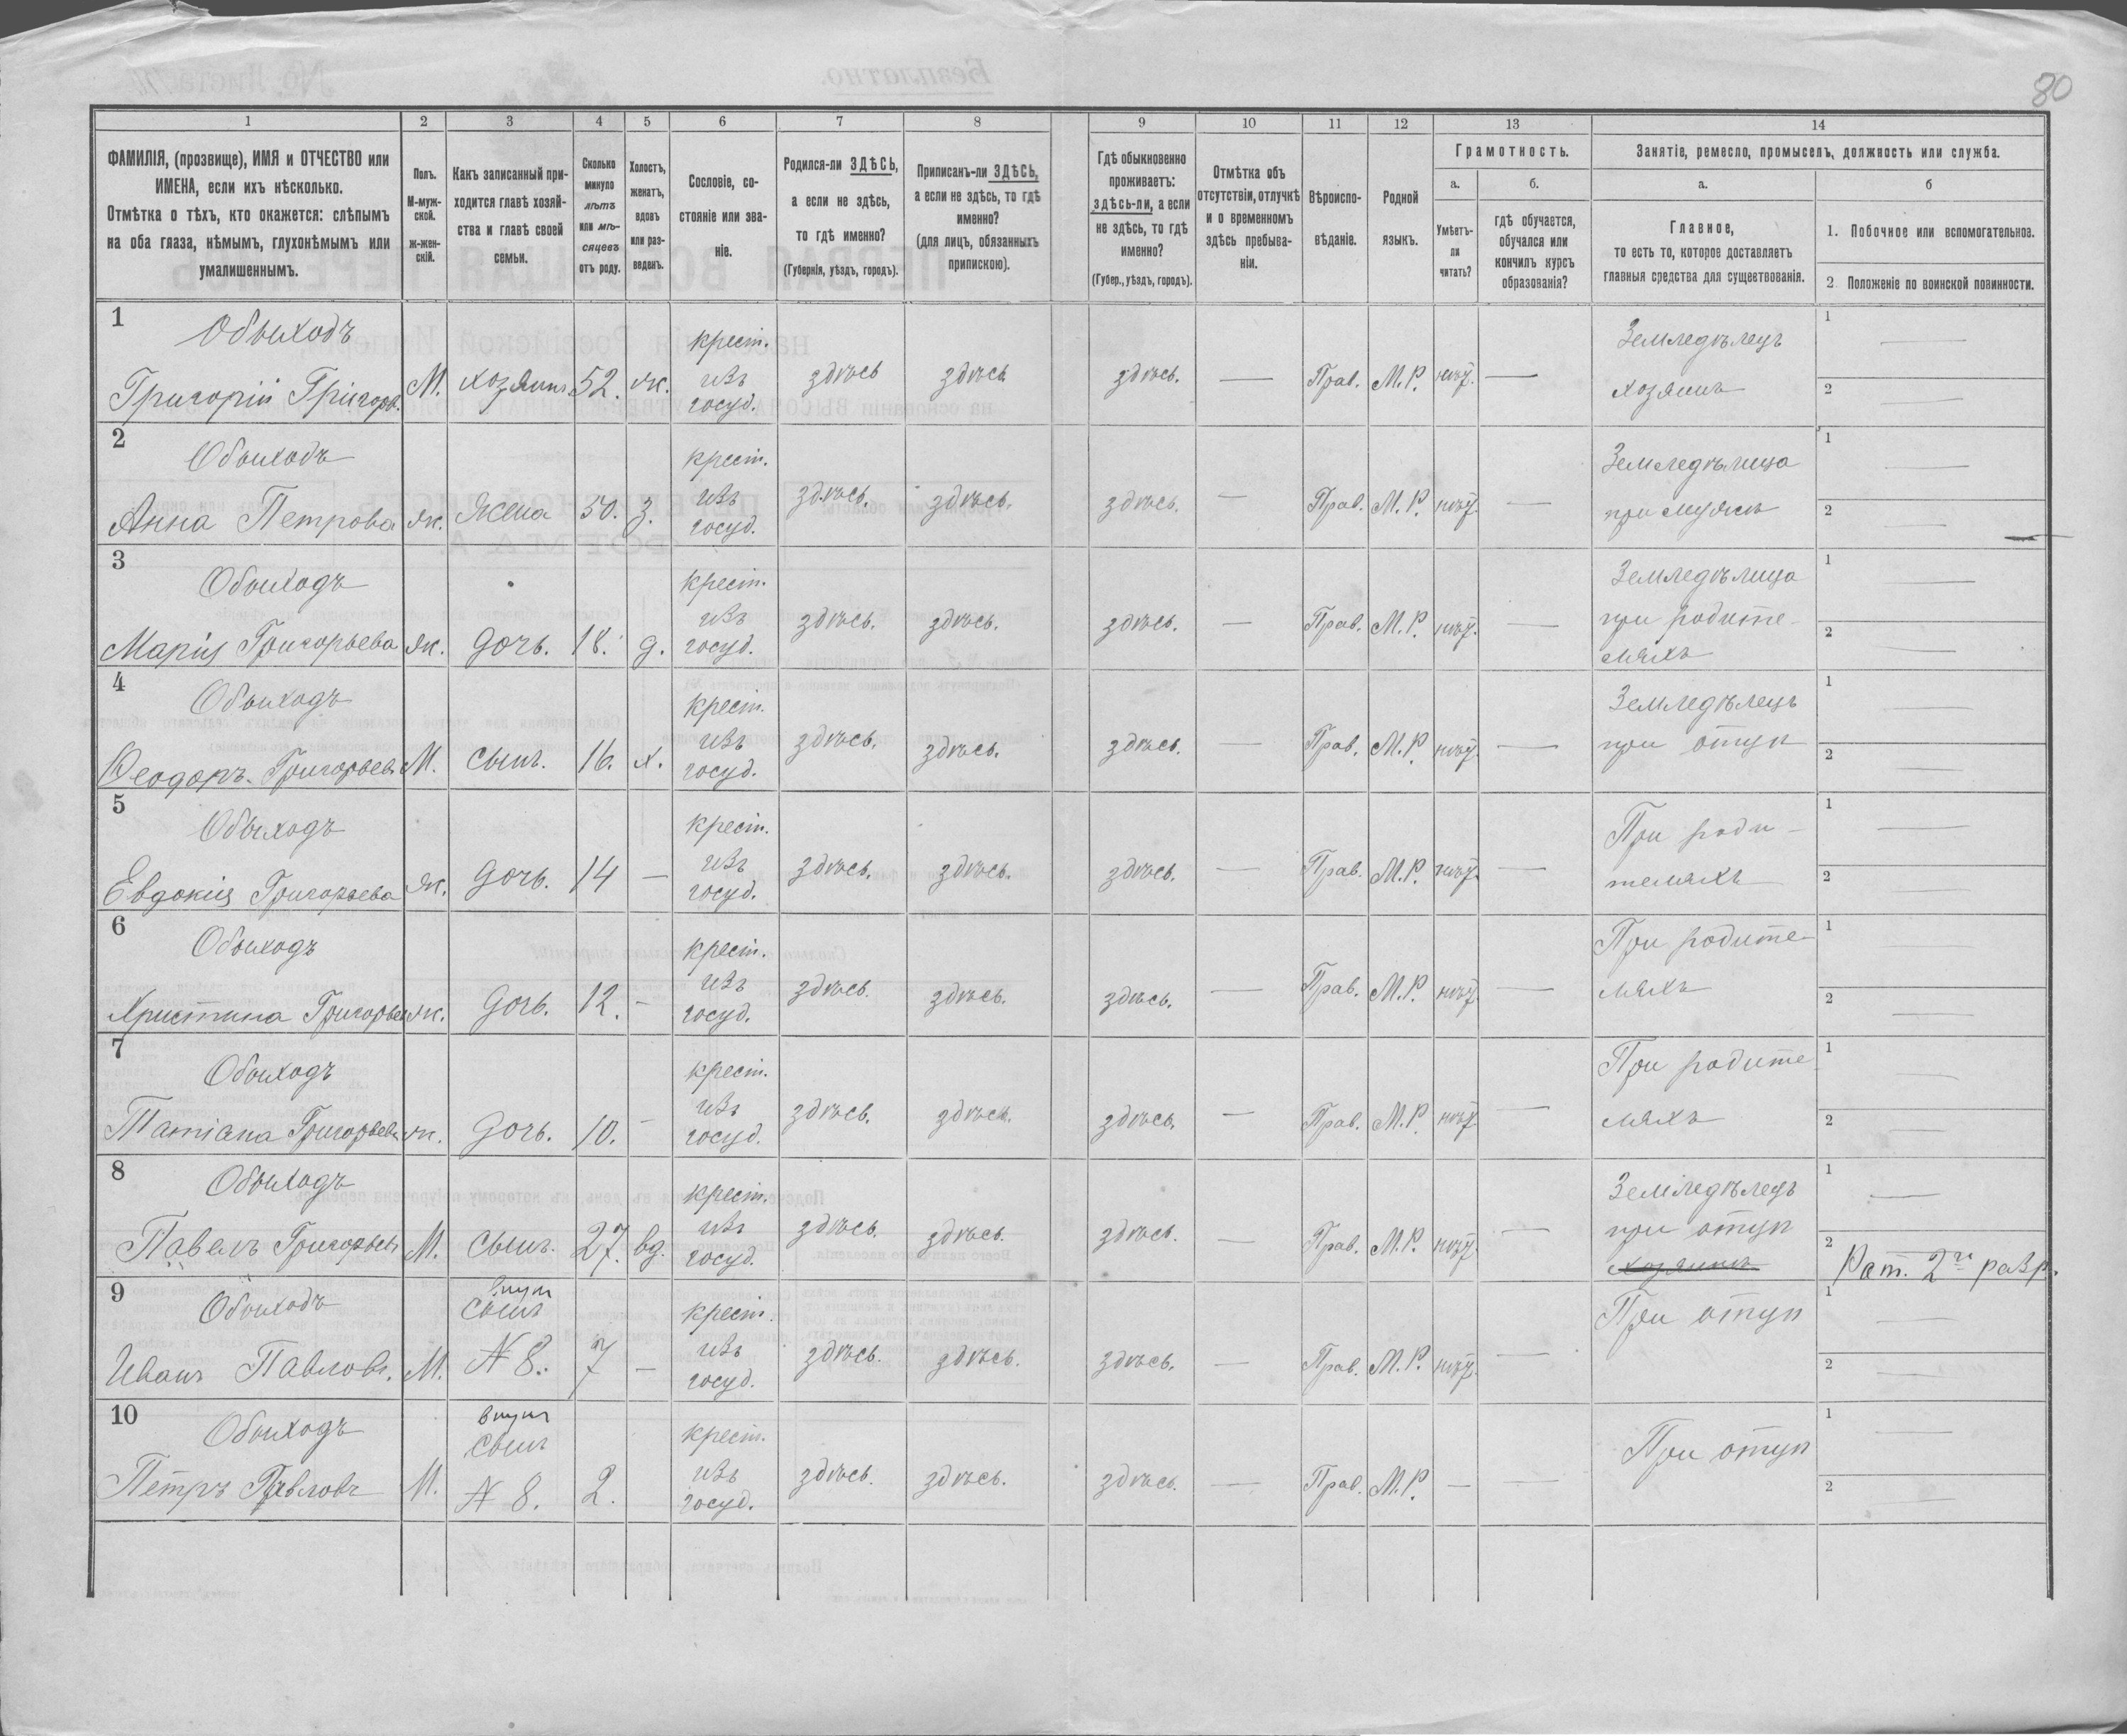 80
1 2 3 4 5 6 7 8 9 10 11 12 13 14
ФАМИЛІЯ, (прозвище), ИМЯ и ОТЧЕСТВО или ИМЕНА, если ихъ нѣсколько.
Отмѣтка о тѣхъ, кто окажется: слѣпымъ на оба глаза, нѣмымъ, глухонѣмымъ или умалишеннымъ.
Полъ. М-муж-ской. ж-жен-скій.
Какъ записанный при-ходится главѣ хозяй-ства и главѣ своей семьи.
Сколько минуло лѣтъ или мѣ-сяцевъ отъ роду.
Холостъ, женатъ, вдовъ или раз-веденъ.
Сословіе, со-стояніе или зва-ніе.
Родился-ли ЗДѢСЬ, а если не здѣсь, то гдѣ именно? (Губернія, уѣздъ, городъ).
Приписанъ-ли ЗДѢСЬ, а если не здѣсь, то гдѣ именно? (для лицъ, обязанныхъ припискою).
Гдѣ обыкновенно проживаетъ: здѣсь-ли, а если не здѣсь, то гдѣ именно? (Губер., уѣздъ, городъ).
Отмѣтка объ отсутствіи, отлучкѣ и о временномъ здѣсь пребыва-ніи.
Вѣроиспо-вѣданіе.
Родной языкъ.
Грамотность.
а. Умѣетъ-ли читать?
б. гдѣ обучается, обучался или кончилъ курсъ образованія?
Занятіе, ремесло, промыселъ, должность или служба.
а. Главное, то есть то, которое доставляетъ главныя средства для существованія.
б 1. Побочное или вспомогательное.
2. Положеніе по воинской повинности.
1 Обыходъ крест. Земледѣлецъ 1 —
Григорій Григорь. М. хозяинъ 52. ж. изъ госуд. здѣсь здѣсь здѣсь. — Прав. М.Р. нѣт. — хозяинъ 2 —
2 Обыходъ крест. Земледѣлица 1 —
Анна Петрова ж. жена 50. з. изъ госуд. здѣсь. здѣсь. здѣсь. — Прав. М.Р. нѣт. — при мужѣ 2 —
3 Обыходъ крест. Земледѣлица 1 —
Марія Григорьева ж. дочь. 18. д. изъ госуд. здѣсь. здѣсь. здѣсь. — Прав. М.Р. нѣт. — при родите-ляхъ 2 —
4 Обыходъ крест. Земледѣлецъ 1 —
Ѳеодоръ Григорьев М. сынъ. 16. х. изъ госуд. здѣсь. здѣсь. здѣсь. — Прав. М.Р. нѣт. — при отцѣ 2 —
5 Обыходъ крест. При роди- 1 —
Евдокія Григорьева ж. дочь. 14 — изъ госуд. здѣсь. здѣсь. здѣсь. — Прав. М.Р. нѣт. — теляхъ 2
6 Обыходъ крест. При родите- 1 —
Христина Григорьев ж. дочь. 12. — изъ госуд. здѣсь. здѣсь. здѣсь. — Прав. М.Р. нѣт. — ляхъ 2 —
7 Обыходъ крест. При родите 1 —
Татіана Григорьев ж. дочь. 10. — изъ госуд. здѣсь. здѣсь. здѣсь. — Прав. М.Р. нѣт. — ляхъ 2 —
8 Обыходъ крест. Земледѣлецъ 1 —
Павелъ Григорьев М. сынъ. 27. вд. изъ госуд. здѣсь. здѣсь. здѣсь. — Прав. М.Р. нѣт. — при отцѣ хозяинѣ 2 Рат. 2го разр.
9 Обыходъ внук сынъ крест. При отцѣ 1 —
Иванъ Павлов. М. N 8. 7 — изъ госуд. здѣсь. здѣсь. здѣсь. — Прав. М.Р. нѣт. — 2 —
10 Обыходъ внук сынъ крест. При отцѣ 1 —
Петръ Павловъ М. N 8. 2. изъ госуд. здѣсь. здѣсь. здѣсь. — Прав. М.Р. — — 2 —